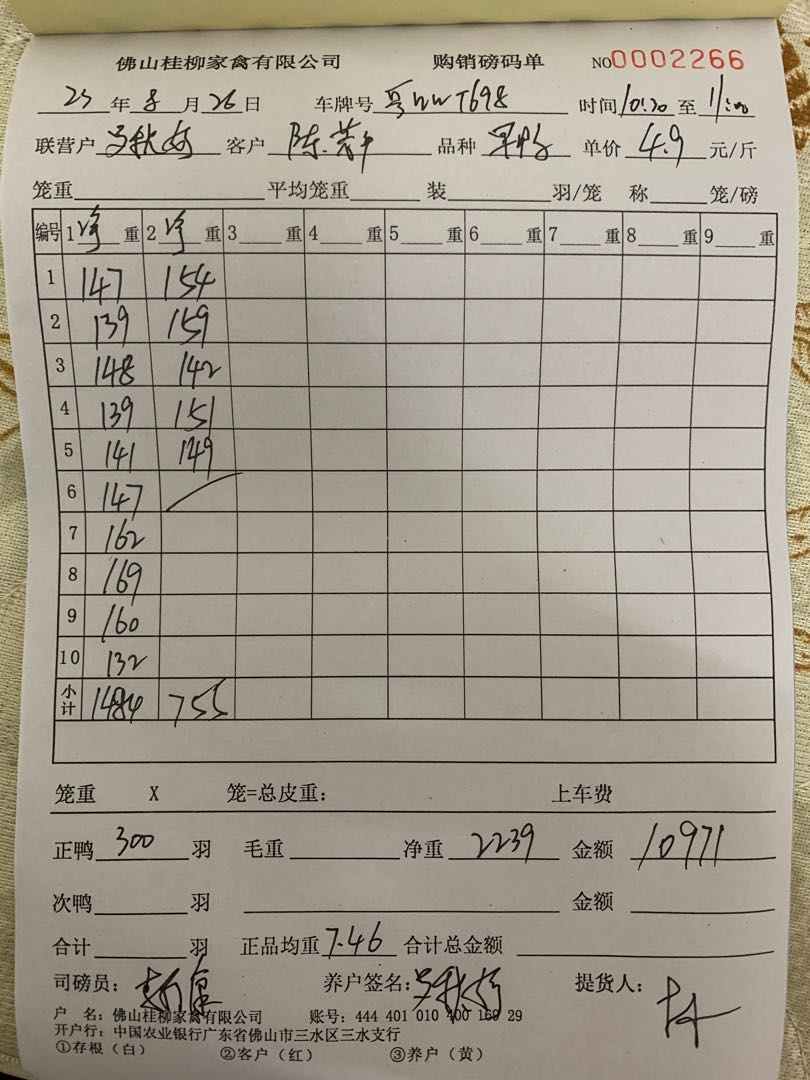 佛山桂柳家禽有限公司 购销磅码单 NO0002266
25年8月26日 车牌号 粤WWT698 时间10:30至11:00
联营户 客户 陈 品种 单价4.9元/斤
笼重 平均笼重 装 羽/笼 称 笼/磅
编号 1净重 2净重 3 重 4 重 5 重 6 重 7 重 8 重 9 重
1 147 154
2 139 159
3 148 142
4 139 151
5 141 149
6 147
7 162
8 169
9 160
10 132
小计 1484 755
笼重 X 笼=总皮重: 上车费
正鸭 300 羽 毛重 净重 2239 金额 10971
次鸭 羽 金额
合计 羽 正品均重7.46 合计总金额
司磅员: 养户签名: 提货人:
户 名: 佛山桂柳家禽有限公司 账号: 444 401 010 400 169 29
开户行: 中国农业银行广东省佛山市三水区三水支行
①存根(白) ②客户(红) ③养户(黄)